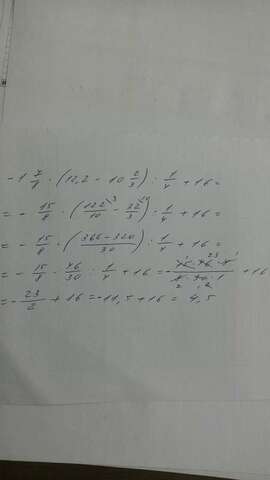 -1 7/8 · (12,2 - 10 2/3) : 1/4 + 16 =
= - 15/8 · (122/10 \3 - 32/3 \10) : 1/4 + 16 =
= - 15/8 · (366-320/30) : 1/4 + 16 =
= - 15/8 · 46/30 : 1/4 + 16 = - 15·46·4/8·30·1 + 16
= - 23/2 + 16 = -11,5 + 16 = 4,5